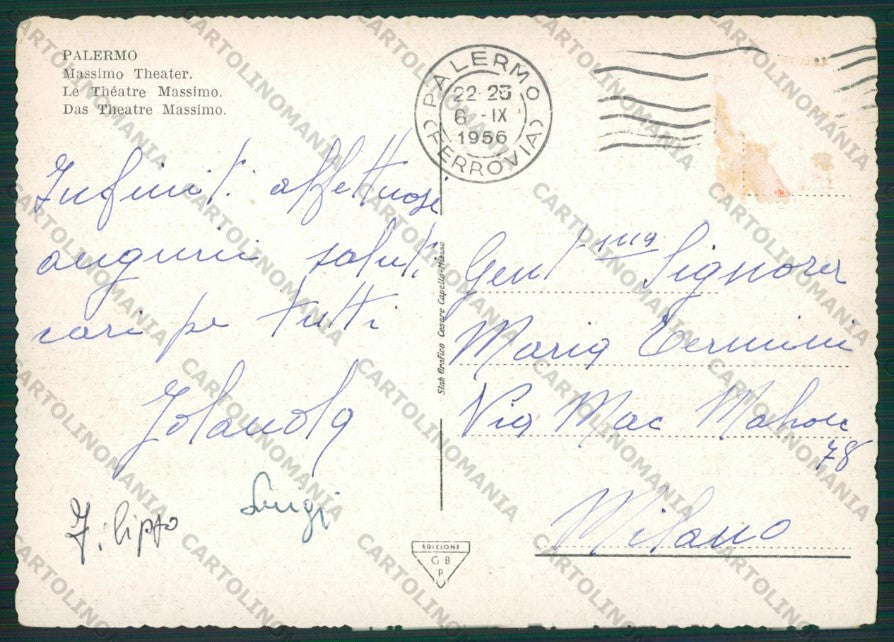 PALERMO
Massimo Theater.
Le Théatre Massimo.
Das Theatre Massimo.
PALERMO
22-23
6 - IX
1956
(FERROVIA)
Infiniti affettuosi
auguri saluti
cari per tutti
Jolanda
Filippo
Luigi
Gent.ma Signora
Maria Termini
Via Mac Mahon
78
Milano
Stab Grafico Cesare Capello-Milano
EDIZIONE
G B
P
CARTOLINOMANIA